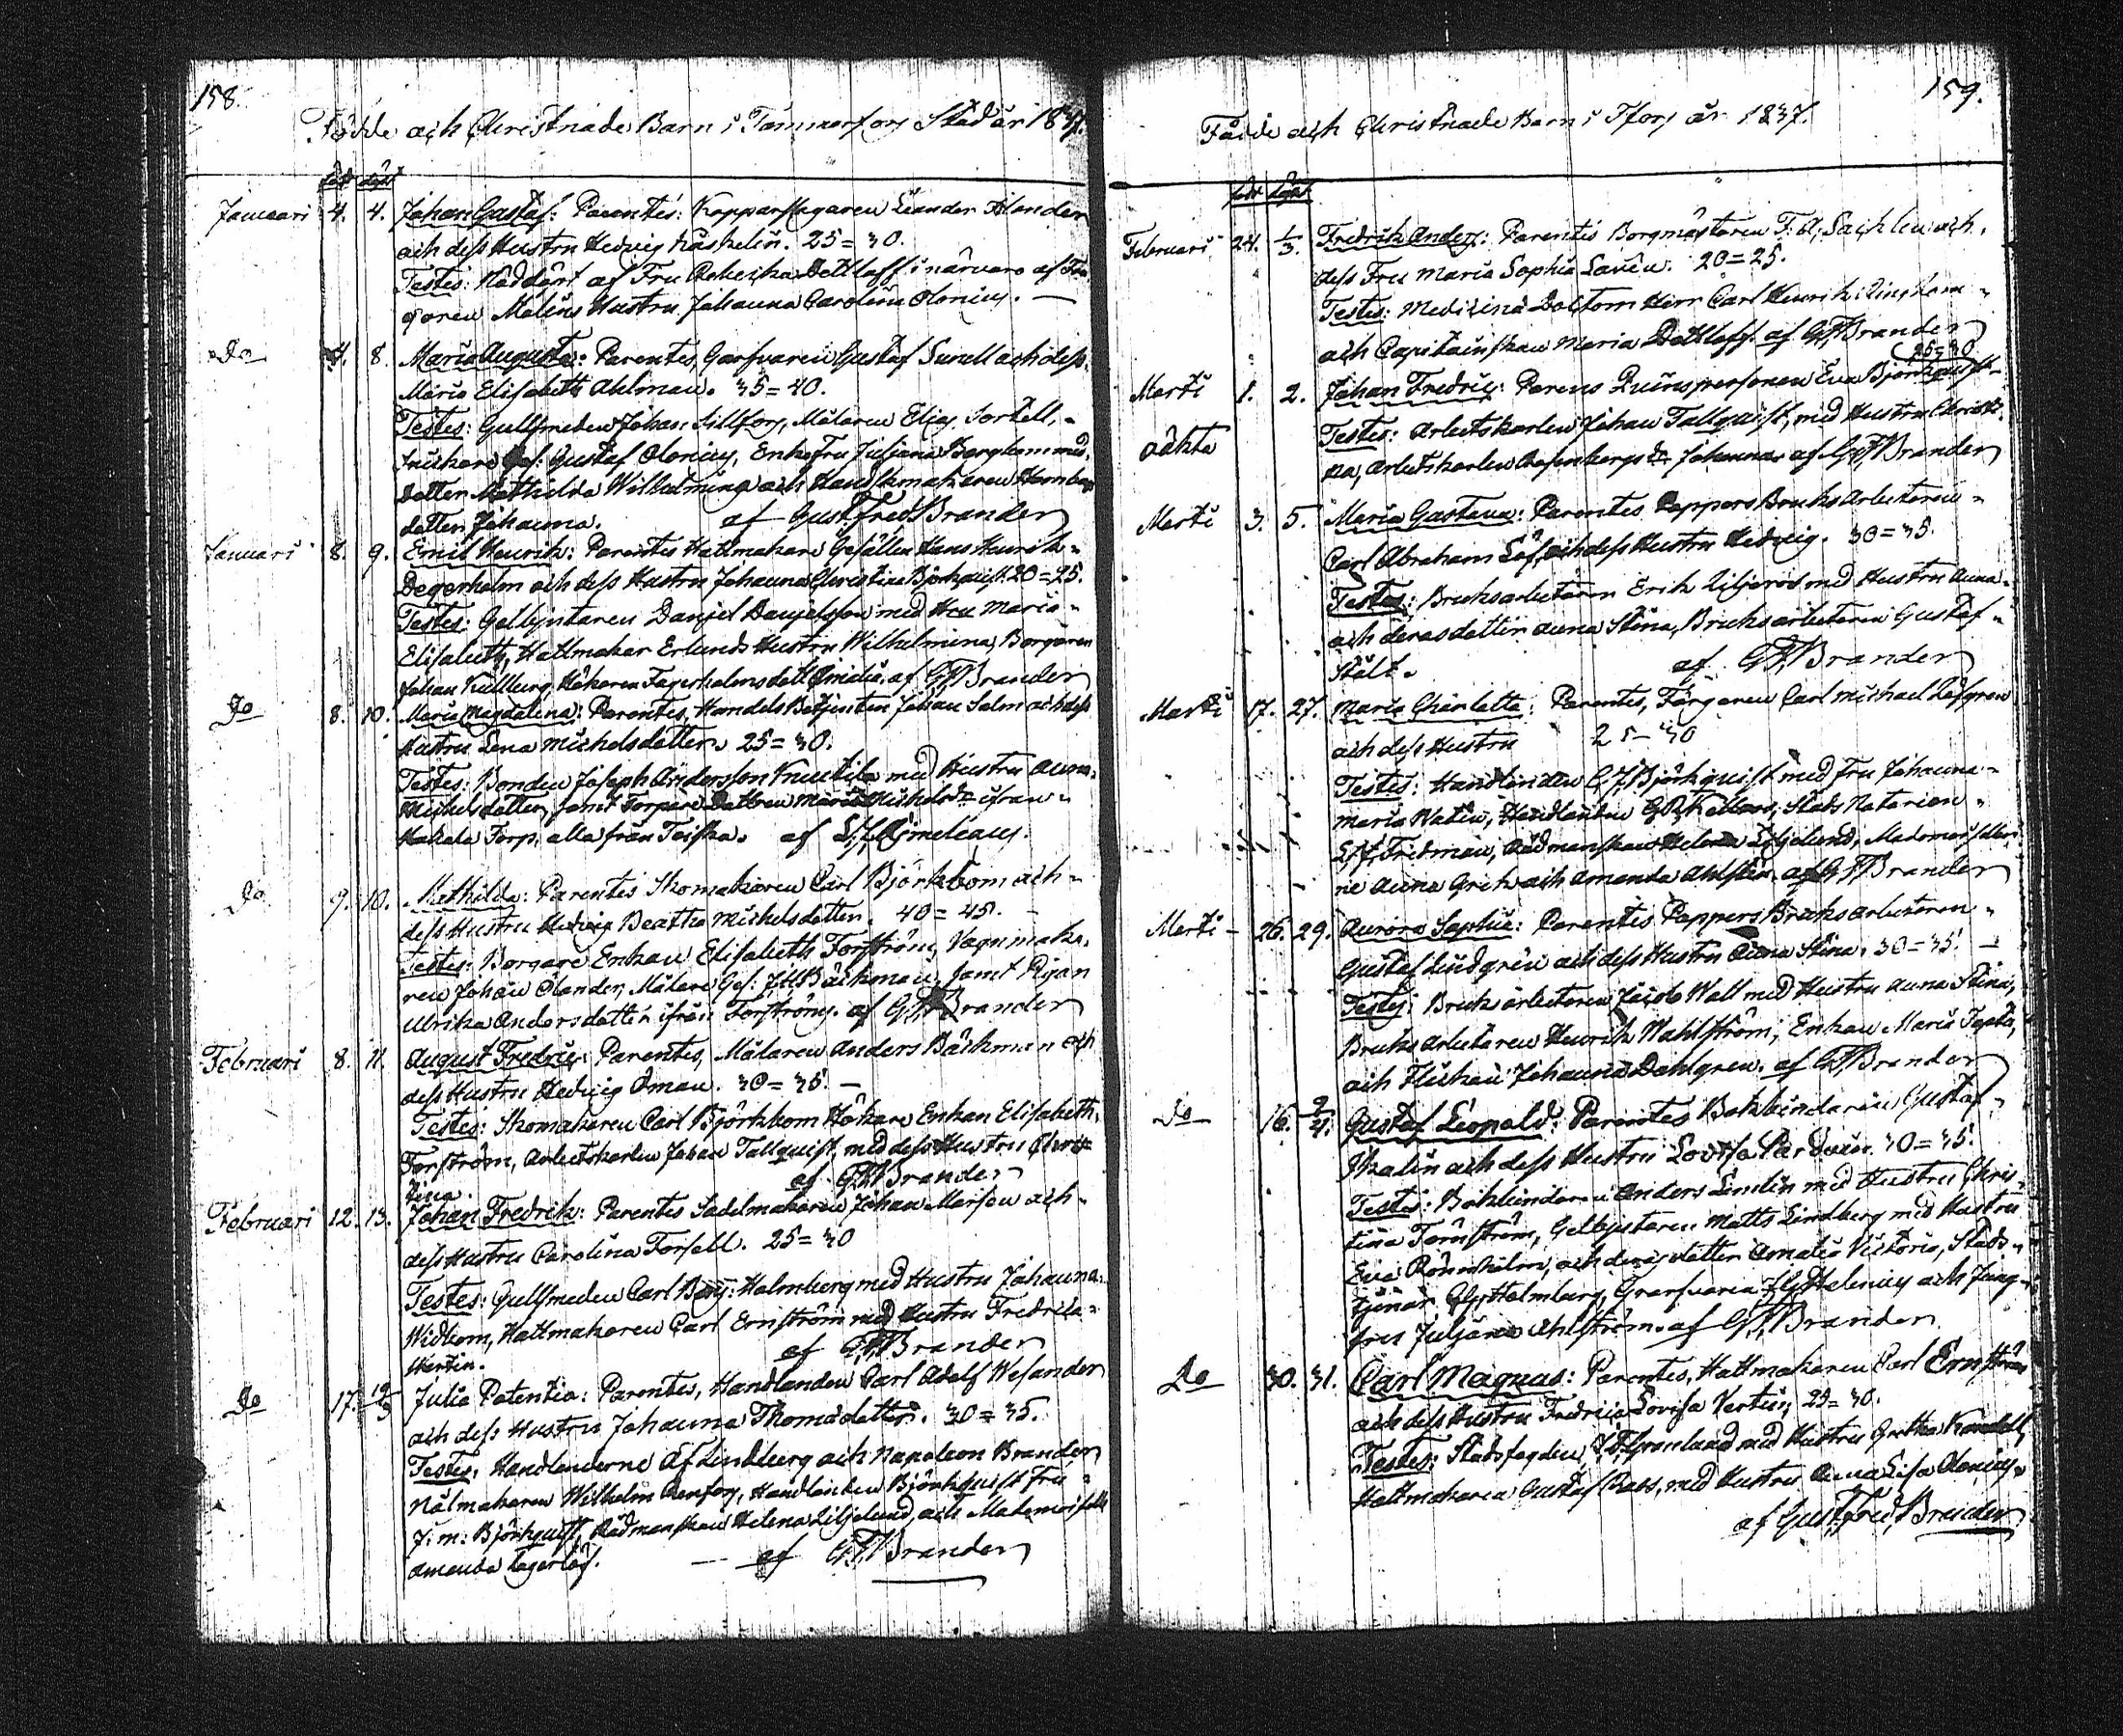 158.
Födde och Christnade Barn i Tammerfors Stad år 1837.
född döpt
Januari 4. 4. Johan Gustaf: Parentes: Kopparslagaren Leander Ilander
och dess Hustru Hedvig Häskelin. 25=30.
Testes: Nöddöpt af Fru Rebecka Dettloff i närvaro af
garen Malins Hustru Johanna Carolina Olonius.
Do 4. 8. Maria Augusta: Parentes, Garfvaren Gustaf Sunell och dess
Maria Elisabeth Ahlman. 35=40.
Testes: Gullsmeden Johan Sillfors, Målaren Elias Sortell,
Gef: Gustaf Olonius, Enkefru Juliana Berghom med
dotter Mathilda Wilhelmina och Handskmakaren
dotter Johanna. af Gust. Fred Brander
Januari 8. 9. Emil Henrik: Parentes Hattmakare Gesällen Hans Henrik
Degerholm och dess Hustru Johanna Christina Björkquist. 20=25.
Testes: Gelbgjutaren Daniel Danielsson med Hru Maria
Elisabeth, Hattmakar Erlunds Hustru Wilhelmina, Borgaren
Johan Kullberg, Hökaren Fagerholms dott. Amalia. af GFBrander
Do 8. 10. Maria Magdalena: Parentes, Handels Betjenten Johan Salm och dess
Hustru Lena Michelsdotter. 25=30.
Testes: Bonden Joseph Andersson Knuutila med Hustru Anna
Michelsdotter, samt Torpare Dottren Maria Michelsdr ifrån
Hakala Torp, alla från Teisko. af
Do 9. 10. Mathilda: Parentes Skomakaren Carl Björkbom och
dess Hustru Hedvig Beatha Michelsdotter. 40=45.
Testes: Borgare Enkan Elisabeth Forsström, Vagnmaka-
ren Johan Ölander, Målare Ges: Bäckman, samt Pigan
Ulrika Andersdotter ifrån Forsströms. af GFBrander
Februari 8. 11. August Fredric: Parentes, Målaren Anders Bäckman och
dess Hustru Hedvig Öman. 30=35.
Testes: Skomakaren Carl Björkbom Hökare Enkan Elisabeth
Forsström, Arbetskarlen Johan Tallquist, med dess Hustru Chris-
tina. af GFBrander
Februari 12. 13. Johan Fredrik: Parentes Sadelmakaren Johan Marsen och
dess Hustru Carolina Forsell. 25=30
Testes: Gullsmeden Carl Benj: Holmberg med Hustru Johanna
Widbom, Hattmakaren Carl Ernström med Hustru Fredrica
Wertin. af GFBrander
Do 17. 19/3 Julia Potentia: Parentes, Handlanden Carl Adolf Wesander
och dess Hustru Johanna Thomasdotter. 30=35.
Testes: Handlanderne Af Lindberg och Napoleon Brander,
Nålmakaren Wilhelm Renfors, Handlanden Björkquist Fru
J: M: Björkquist, Rådmanskan Helena Liljelund, och Mademoiselle
Amanda Lagerlöf. af GFBrander
159.
Födde och Christnade Barn i Tfors år 1837.
född döpt
Februari 24. 1/3. Fredrik Anders: Parentes Borgmästaren F: A. Sachleen och
dess Fru Maria Sophia Lavén. 20=25.
Testes: Medicinæ Doctorn Herr Carl Henrik
och Capitainskan Maria Dettloff. af GFBrander
25=30
Marti 1. 2. Johan Fredric: Parens Qvinspersonen Eva Björkqvist
oäkta Testes: Arbetskarlen Johan Tallquist, med Hustru Christi-
na, Arbetskarlen Rosenbergs dr Johanna af GFBrander
Marti 3. 5. Maria Gustava: Parentes Pappers Bruks Arbetaren
Carl Abraham Löf, och dess Hustru Hedvig. 30=35.
Testes: Bruksarbetaren Erik Liljeros med Hustru Anna
och deras dotter Anna Stina, Bruksarbetaren Gustaf
Stålt. af GFBrander
Marti 17. 27. Maria Charlotta: Parentes, Färgaren Carl Michael Löfgren
och dess Hustru 25-30
Testes: Handlanden C.J. Björkquist med Fru Johanna
Maria Watén, Handlanden Stads Notarien
Fridman, Rådmanskan Helena Liljelund, Mademoiseller-
ne Anna Grek och Amanda Ahlsten. af GFBrander
Marti 26. 29. Aurora Sophia: Parentes Pappers Bruksarbetaren
Gustaf Lindgren och dess Hustru Anna Stina. 30=35.
Testes: Bruksarbetaren Jacob Wall med Hustru Anna Stina,
Bruks arbetaren Henrik Wahlström, Enkan Maria
och Flickan Johanna Dahlgren. af GFBrander
Do 16. 2/4. Gustaf Leopold: Parentes Bokbindaren Gustaf
Skalin och dess Hustru Lovisa 30=35.
Testes: Bokbindaren Anders Limlin med Hustru Chris-
tina Törnström, Gelbgjutaren Matts Lindberg med Hustru
Eva Rönnholm, och deras dotter Amalia Victoria, Stads-
tjenar Holmberg, Garfvaren Helenius och Jung-
fru Juliana Ahlström. af GFBrander
Do 30. 31. Carl Magnus: Parentes, Hattmakaren Carl Ernström
och dess Hustru Fredrica Lovisa Vertin, 25=30.
Testes: Stadsfogden Grönlund med Hustru Gretha
Hattmakaren Gustaf med Hustru Anna Lisa Olonius.
af Gust. Fred. Brander